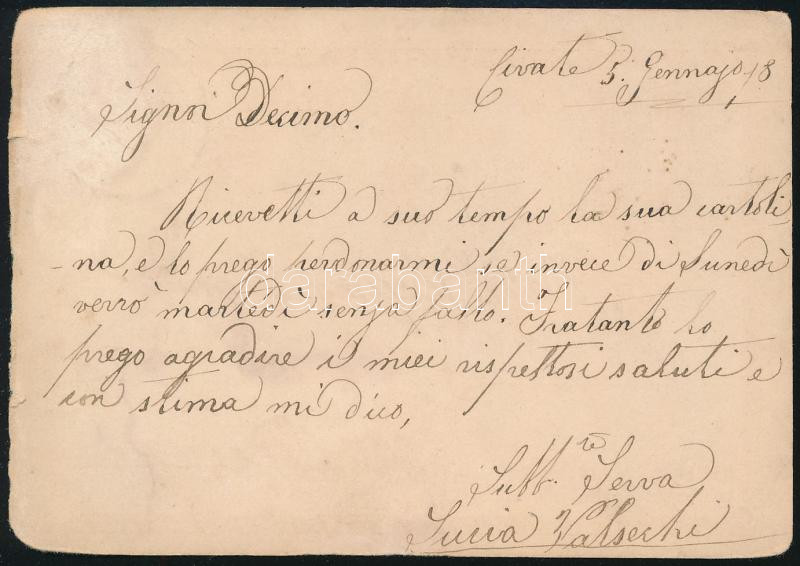 Civate 5. Gennajo 18
Signor Decimo.
Ricevetti a suo tempo la sua cartoli
-na, e lo prego perdonarmi se invece di Lunedì
verrò martedì senza fallo. Fratanto lo
prego agradire i miei rispettosi saluti e
con stima mi dico,
Subb.te Serva
Lucia Valsechi
darabanth